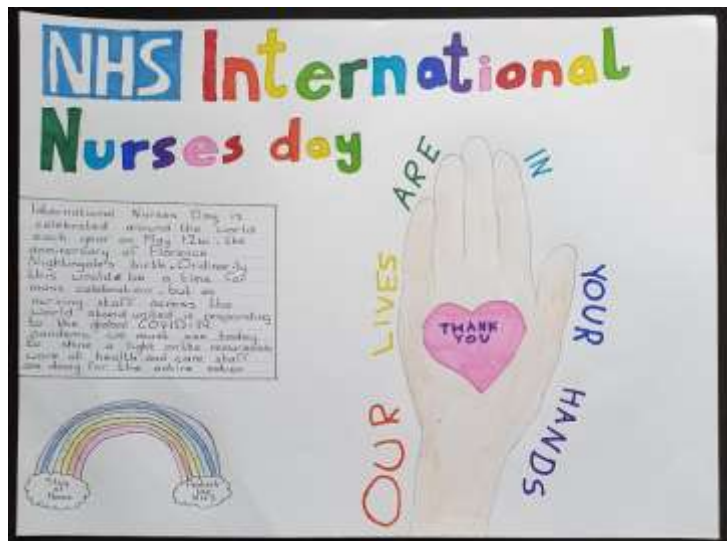 NHS International
Nurses day
International Nurses Day is
celebrated around the world
each year on May 12th, the
anniversary of Florence
Nightingale's birth. Ordinarily
this would be a time for
mass celebration, but as
nursing staff across the
world stand united in responding
to the global COVID-19
pandemic, we must use today
to shine a light on the
work of health and care staff
are doing for the entire nation
OUR LIVES ARE IN YOUR HANDS
THANK
YOU
Stay
at
Home
Protect
the
NHS